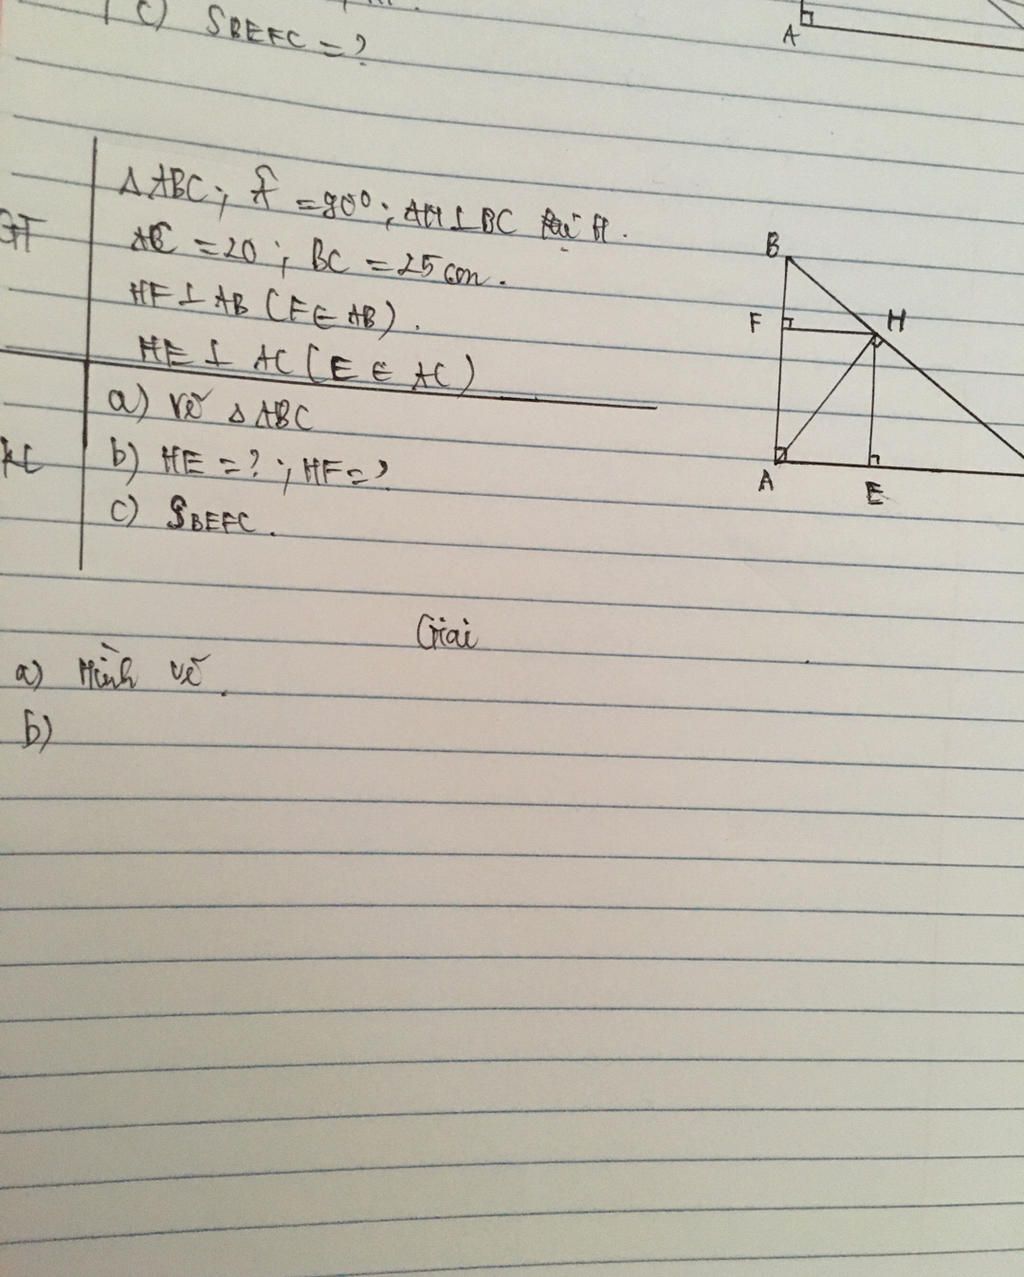 c) SBEFC = ?
A
GT
ΔABC; Â = 90°; AH ⊥ BC tại H.
AC = 20; BC = 25 cm.
HF ⊥ AB (F ∈ AB).
HE ⊥ AC (E ∈ AC)
KL
a) Vẽ ΔABC
b) HE = ?; HF = ?
c) SBEFC.
B
F
H
A
E
Giải
a) Hình vẽ.
b)